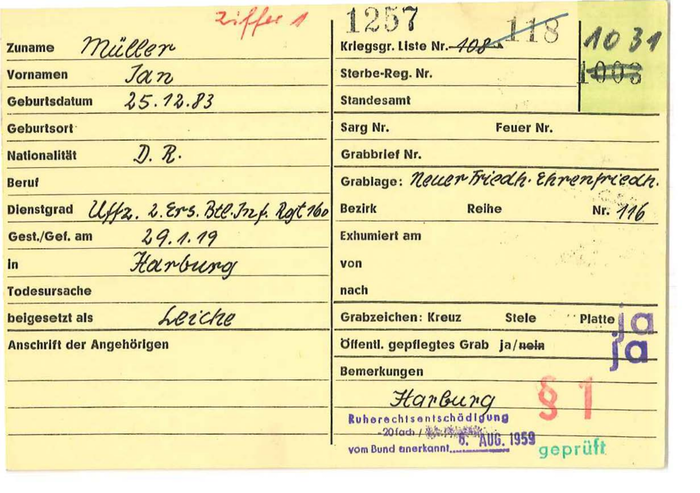 Ziffer 1
1257
Zuname Müller
Vornamen Jan
Geburtsdatum 25.12.83
Geburtsort
Nationalität D. R.
Beruf
Dienstgrad Uffz. 2. Ers. Btl. Inf. Rgt 160
Gest./Gef. am 29.1.19
in Harburg
Todesursache
beigesetzt als Leiche
Anschrift der Angehörigen
Kriegsgr. Liste Nr. 108 118
1031
1003
Sterbe-Reg. Nr.
Standesamt
Sarg Nr. Feuer Nr.
Grabbrief Nr.
Grablage: Neuer Friedh. Ehrenfriedh.
Bezirk Reihe Nr. 116
Exhumiert am
von
nach
Grabzeichen: Kreuz Stele Platte ja
Öffentl. gepflegtes Grab ja/nein ja
Bemerkungen
Harburg
§ 1
Ruherechtsentschädigung
-20fach /
vom Bund anerkannt 6. AUG. 1959
geprüft